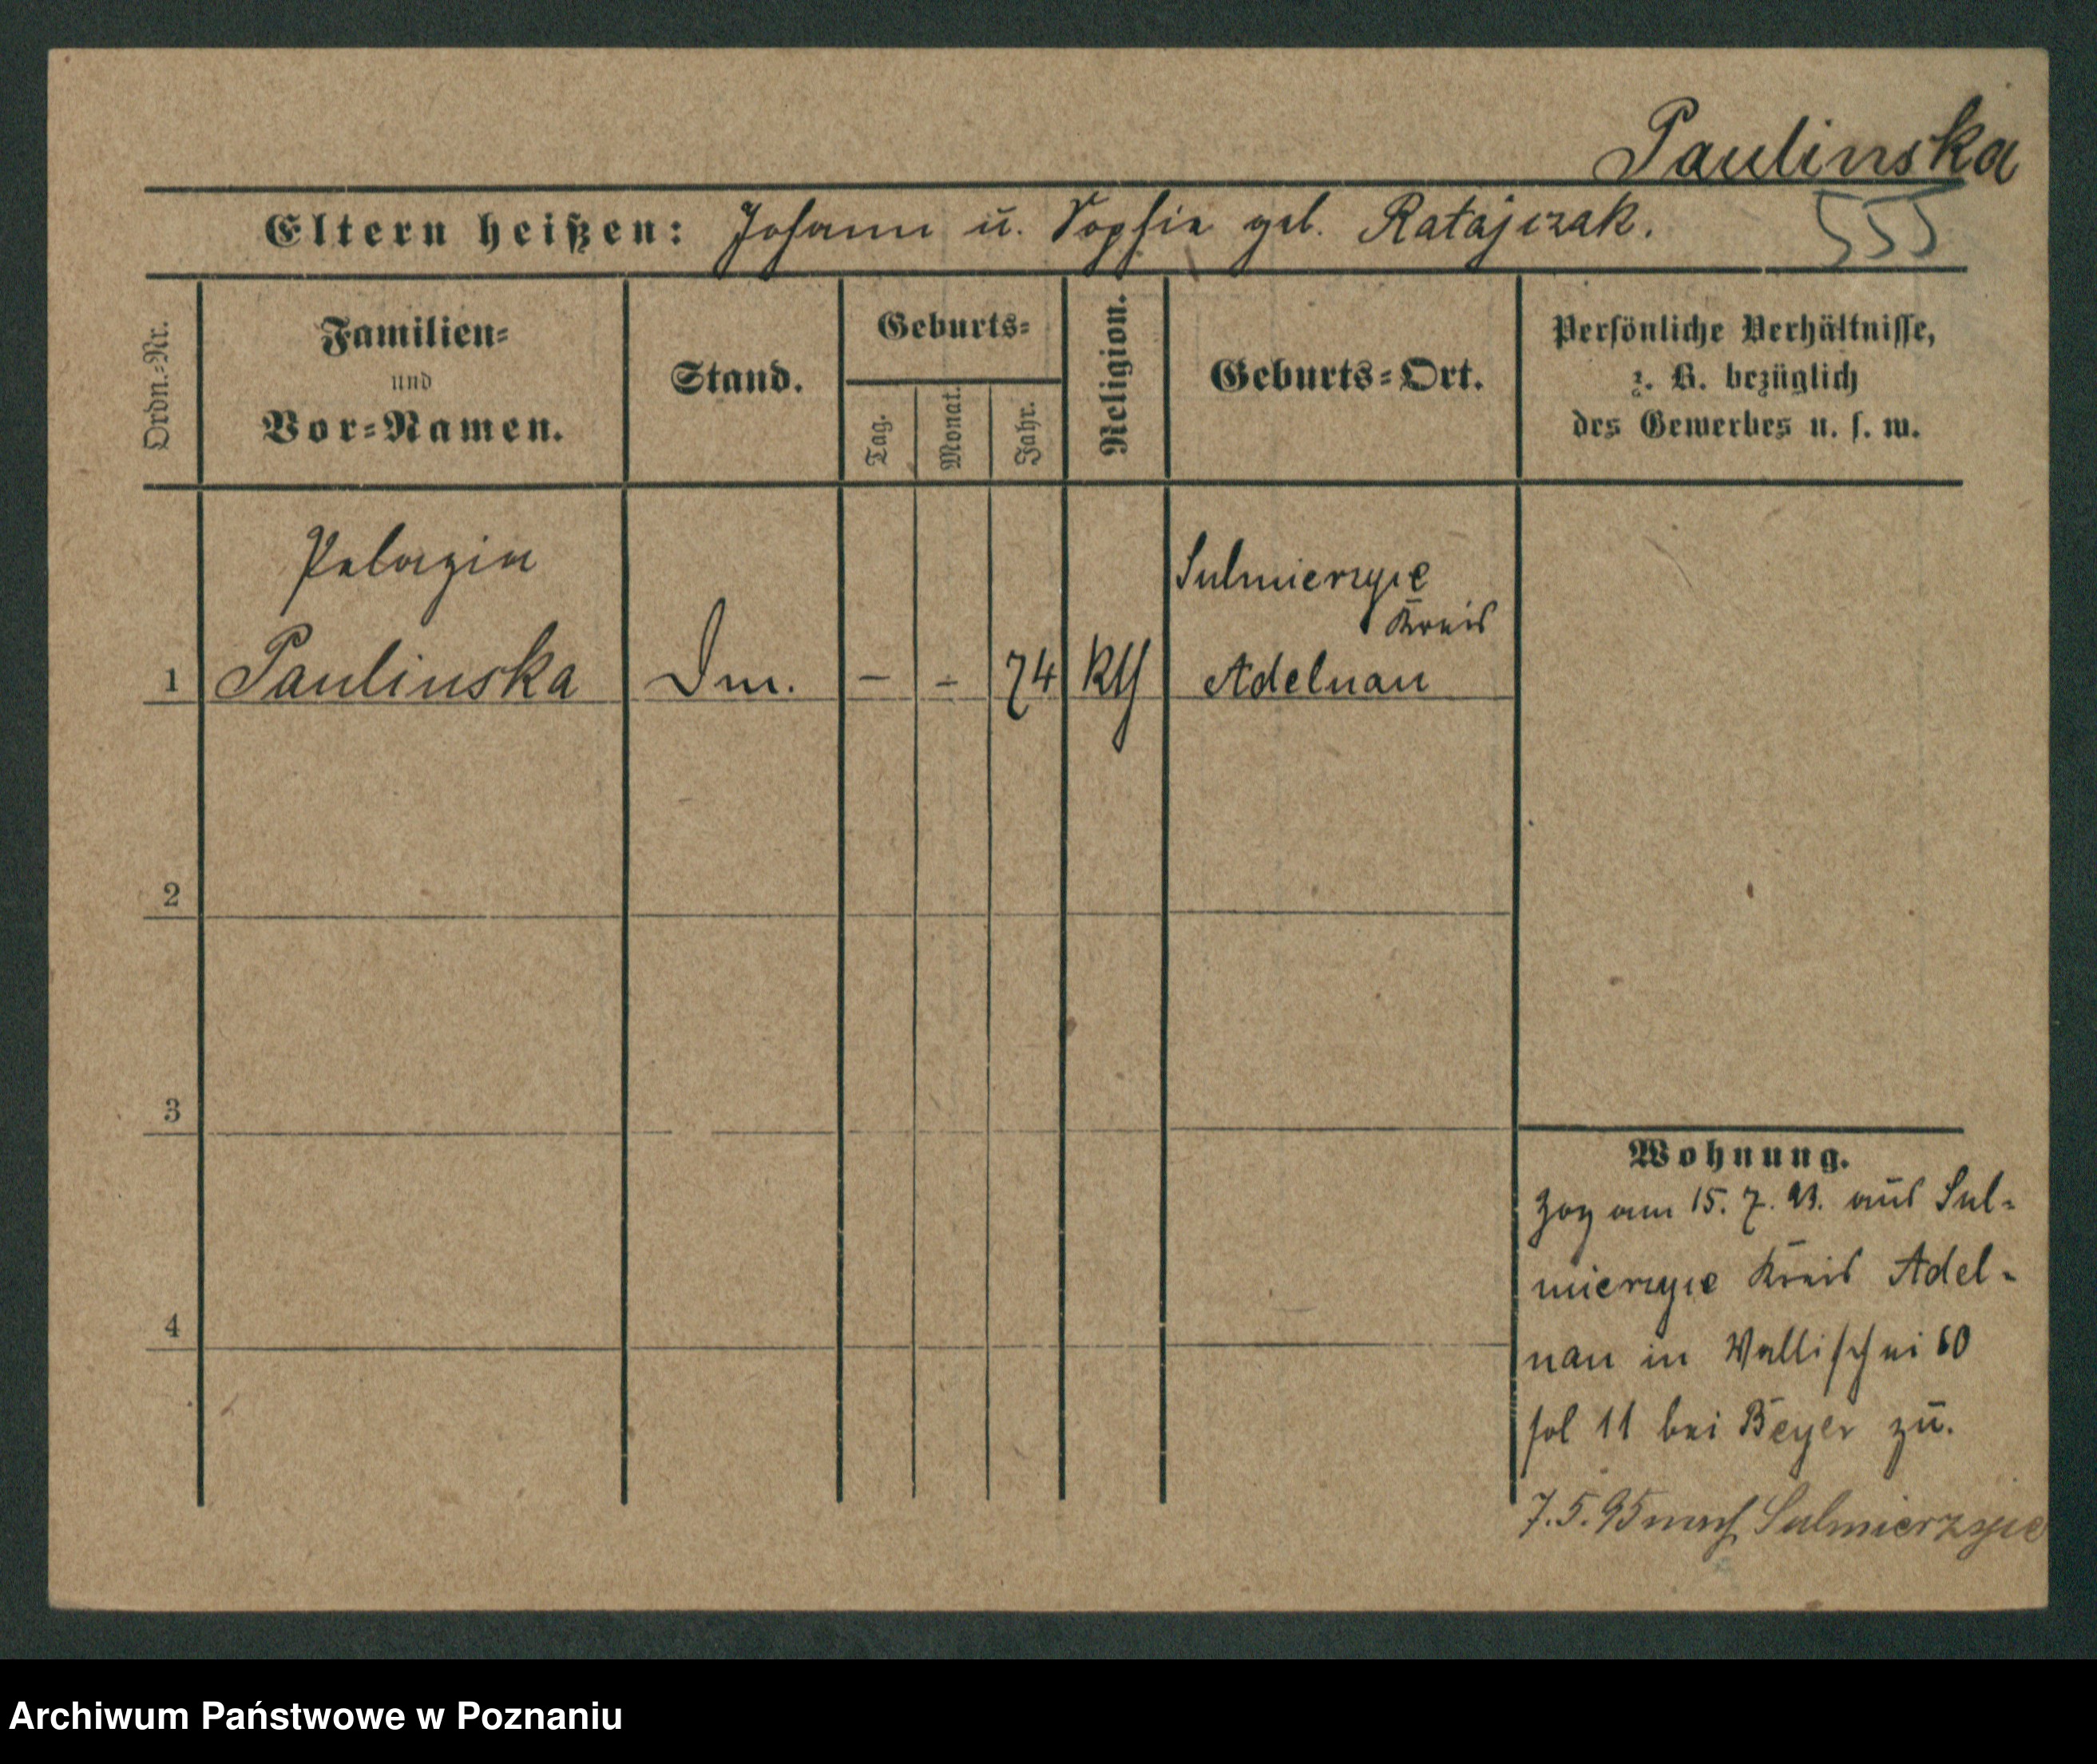 Paulinska
Eltern heißen: Johann u. Sophie geb. Ratajczak.
555
Ordn.=Nr.
Familien=
und
Vor=Namen.
Stand.
Geburts=
Tag.
Monat.
Jahr.
Religion.
Geburts=Ort.
Persönliche Verhältnisse,
z. B. bezüglich
des Gewerbes u. s. w.
Pelagia
Sulmierzyce
Kreis
1 Paulinska Dm. – – 74 kth Adelnau
2
3
4
Wohnung.
Zog am 15. 7. 93. aus Sul=
mierzyce Kreis Adel=
nau in Wallischei 60
fol 11 bei Beyer zu.
7.5.95 nach Sulmierzyce
Archiwum Państwowe w Poznaniu